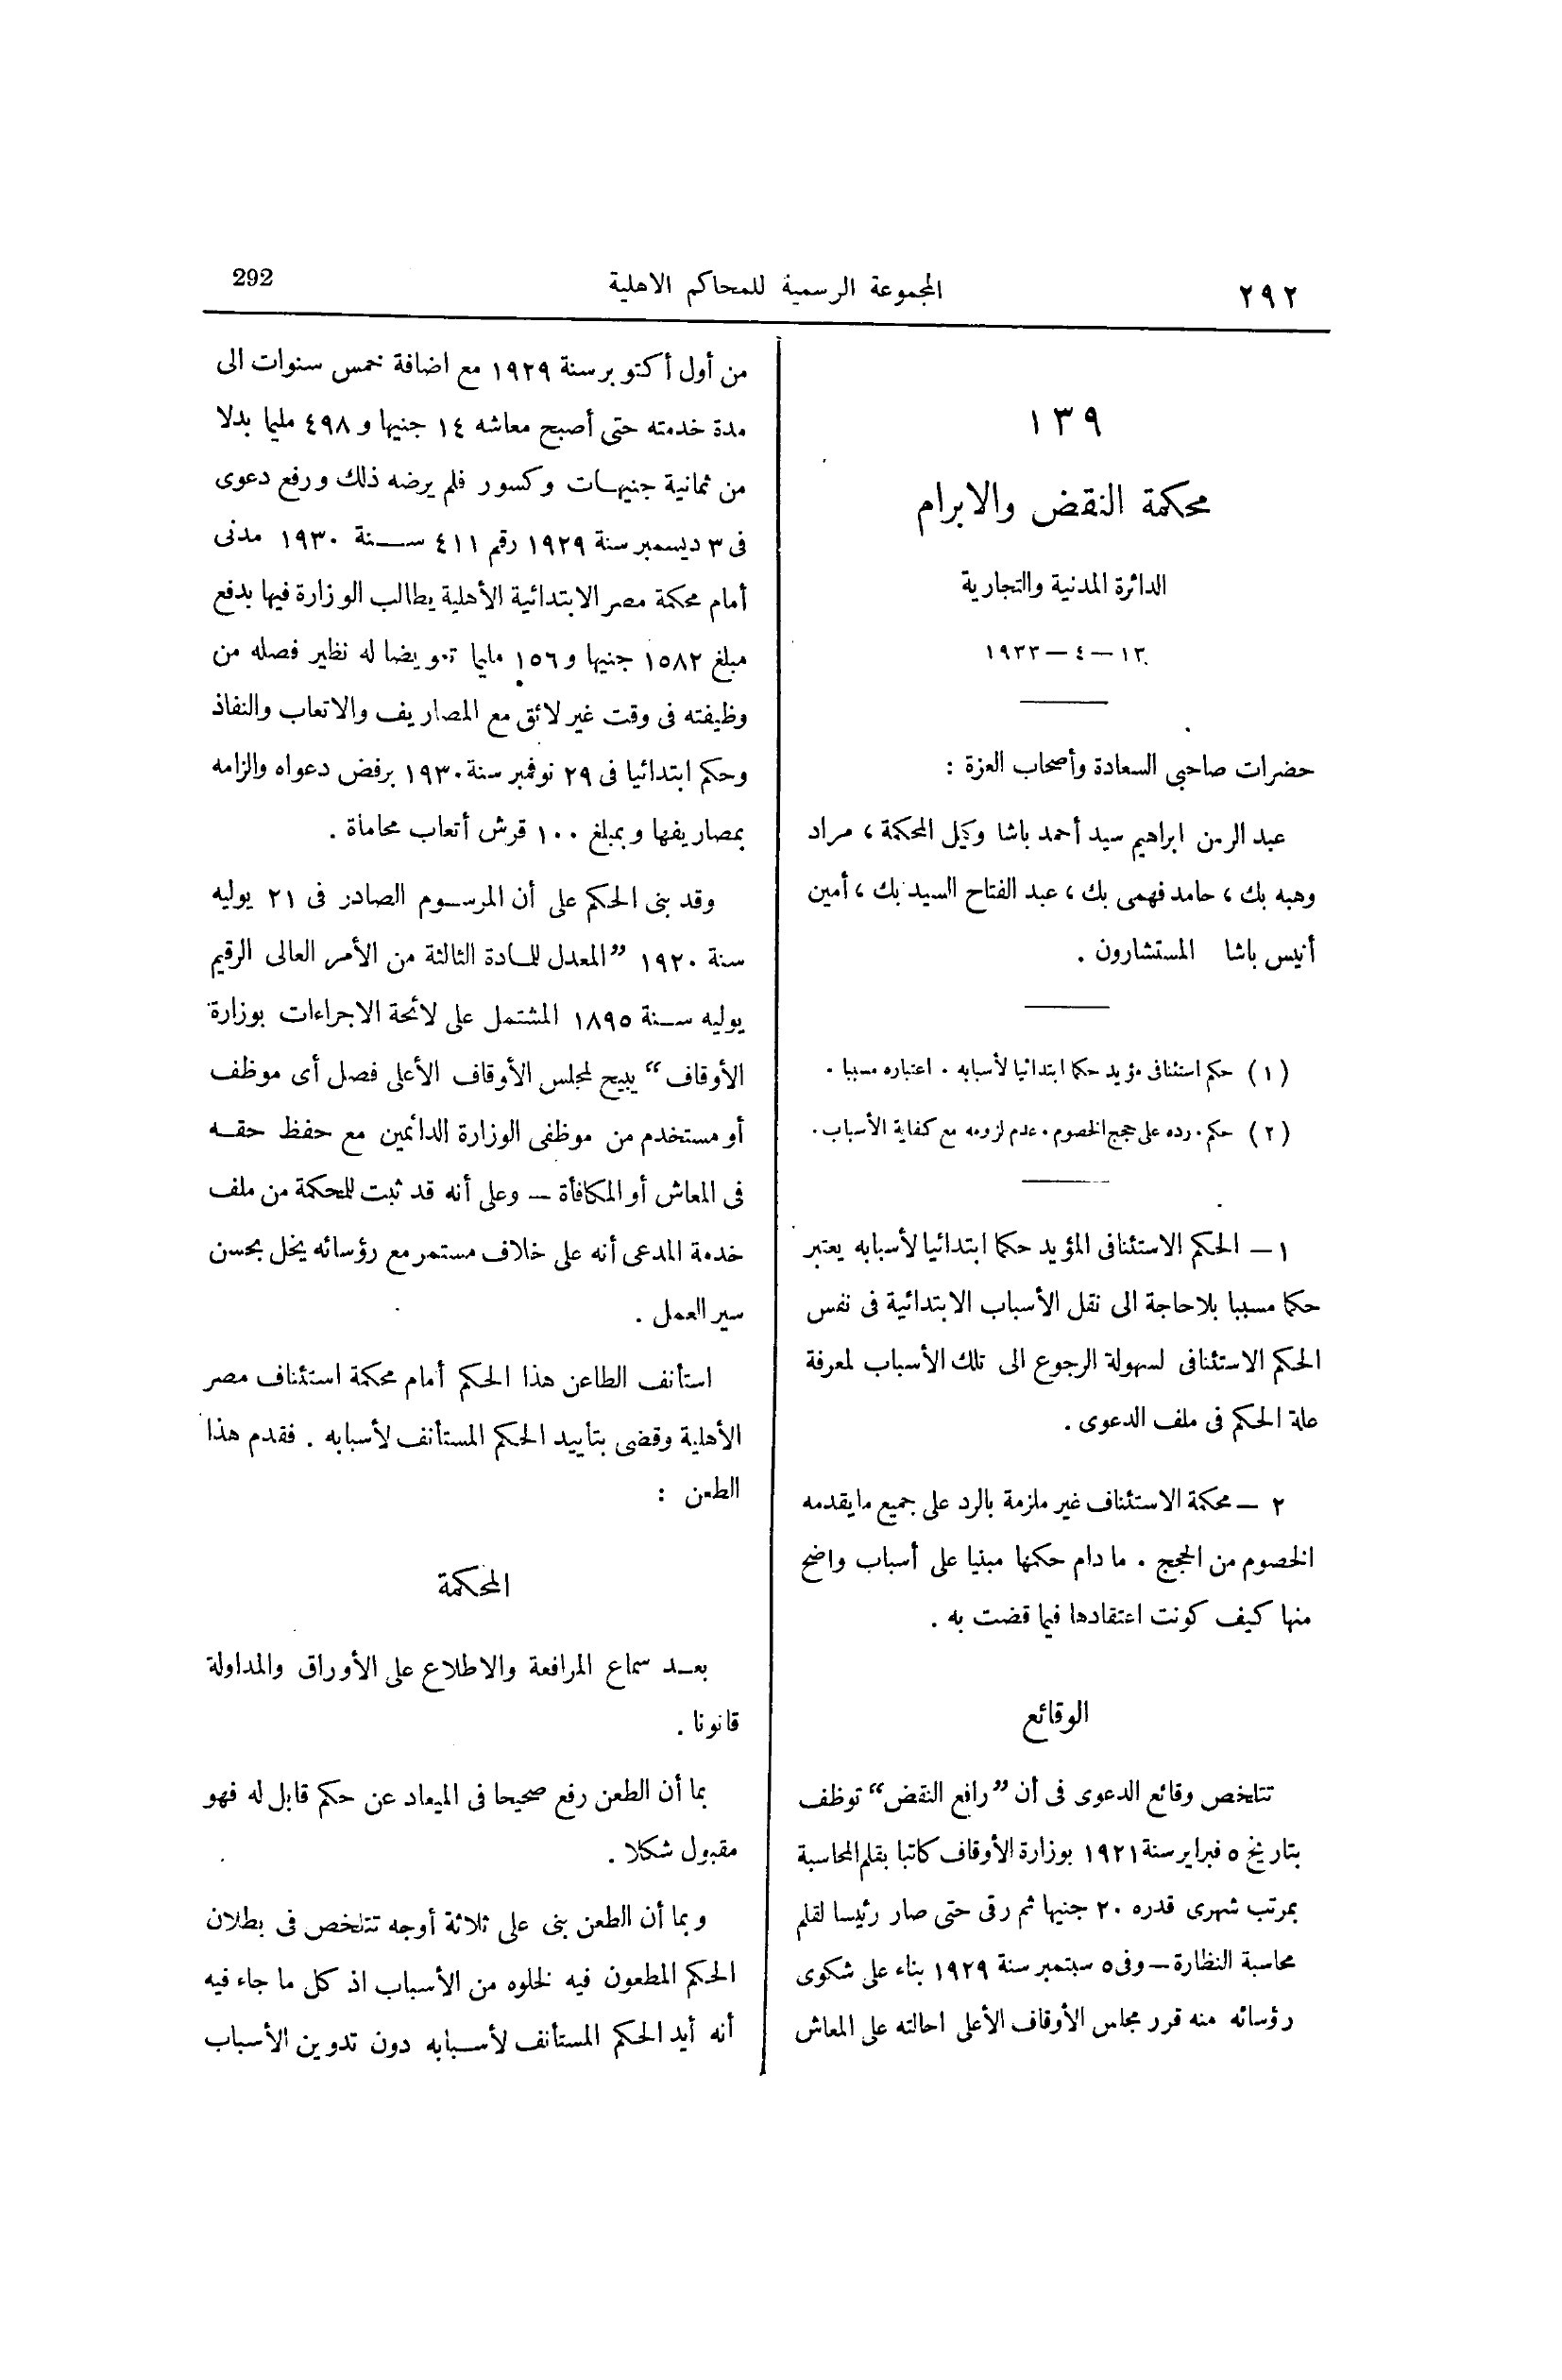 ٢٩٢
المجموعة الرسمية للمحاكم الاهلية
292
١٣٩
محكمة النقض والابرام
الدائرة المدنية والتجارية
١٣ — ٤ — ١٩٣٣
حضرات صاحبي السعادة وأصحاب العزة :
عبد الرحمن ابراهيم سيد أحمد باشا وكيل المحكمة ، مراد
وهبه بك ، حامد فهمى بك ، عبد الفتاح السيد بك ، أمين
أنيس باشا المستشارون .
(١) حكم استئنافى مؤيد حكما ابتدائيا لأسبابه . اعتباره مسببا .
(٢) حكم . رده على حجج الخصوم . عدم لزومه مع كفاية الأسباب .
١ — الحكم الاستئنافى المؤيد حكما ابتدائيا لأسبابه يعتبر
حكما مسببا بلاحاجة الى نقل الأسباب الابتدائية فى نفس
الحكم الاستئنافى لسهولة الرجوع الى تلك الأسباب لمعرفة
علة الحكم فى ملف الدعوى .
٢ — محكمة الاستئناف غير ملزمة بالرد على جميع مايقدمه
الخصوم من الحجج . ما دام حكمها مبنيا على أسباب واضح
منها كيف كونت اعتقادها فيما قضت به .
الوقائع
تتلخص وقائع الدعوى فى أن ”رافع النقض“ توظف
بتاريخ ٥ فبراير سنة ١٩٢١ بوزارة الأوقاف كاتبا بقلم المحاسبة
بمرتب شهرى قدره ٢٠ جنيها ثم رقى حتى صار رئيسا لقلم
محاسبة النظارة — وفى ٥ سبتمبر سنة ١٩٢٩ بناء على شكوى
رؤسائه منه قرر مجلس الأوقاف الأعلى احالته على المعاش
من أول أكتوبر سنة ١٩٢٩ مع اضافة خمس سنوات الى
مدة خدمته حتى أصبح معاشه ١٤ جنيها و ٤٩٨ مليما بدلا
من ثمانية جنيهات وكسور فلم يرضه ذلك ورفع دعوى
فى ٣ ديسمبر سنة ١٩٢٩ رقم ٤١١ سنة ١٩٣٠ مدنى
أمام محكمة مصر الابتدائية الأهلية يطالب الوزارة فيها بدفع
مبلغ ١٥٨٢ جنيها و ١٥٦ مليما تعويضا له نظير فصله من
وظيفته فى وقت غير لائق مع المصاريف والاتعاب والنفاذ
وحكم ابتدائيا فى ٢٩ نوفمبر سنة ١٩٣٠ برفض دعواه والزامه
بمصاريفها وبمبلغ ١٠٠ قرش أتعاب محاماة .
وقد بنى الحكم على أن المرسوم الصادر فى ٢١ يوليه
سنة ١٩٢٠ ”المعدل للمادة الثالثة من الأمر العالى الرقيم
يوليه سنة ١٨٩٥ المشتمل على لائحة الاجراءات بوزارة
الأوقاف“ يبيح لمجلس الأوقاف الأعلى فصل أى موظف
أو مستخدم من موظفى الوزارة الدائمين مع حفظ حقه
فى المعاش أو المكافأة — وعلى أنه قد ثبت للمحكمة من ملف
خدمة المدعى أنه على خلاف مستمر مع رؤسائه يخل بحسن
سير العمل .
استأنف الطاعن هذا الحكم أمام محكمة استئناف مصر
الأهلية وقضى بتأييد الحكم المستأنف لأسبابه . فقدم هذا
الطعن :
المحكمة
بعد سماع المرافعة والاطلاع على الأوراق والمداولة
قانونا .
بما أن الطعن رفع صحيحا فى الميعاد عن حكم قابل له فهو
مقبول شكلا .
وبما أن الطعن بنى على ثلاثة أوجه تتلخص فى بطلان
الحكم المطعون فيه لخلوه من الأسباب اذ كل ما جاء فيه
أنه أيد الحكم المستأنف لأسبابه دون تدوين الأسباب